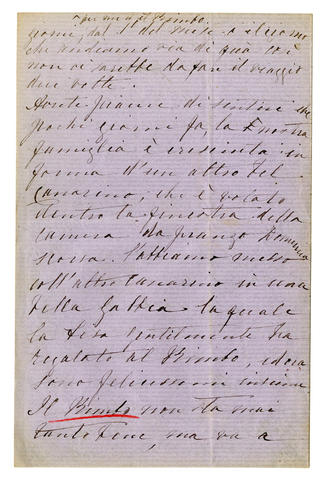 per me e pel Bimbo.
giorni, dal 1 del mese è il giorno
che andiamo via di qua così
non ci sarebbe da far il viaggio
due volte.
Avrete piacere di sentire che
pochi giorni fa, la nostra
famiglia è cresciuta in
forma d'un altro bel
Canarino, che è volato
dentro la finestra della
camera da pranzo Domenica
scorsa. L'abbiamo messo
coll'altro Canarino in una
bella Gabbia la quale
la gentilmente ha
regalato al Bimbo, ed ora
sono felicissimi insieme
Il Bimbo non sta mai
tanto bene, ma va a